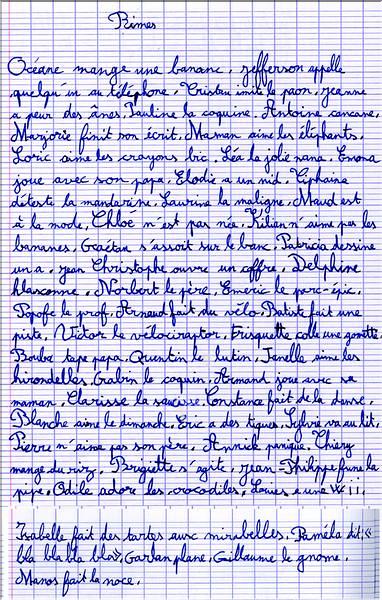 Rimes
Océane mange une banane. Jefferson appelle
quelqu'un au téléphone. Tristan imite le paon. Jeanne
a peur des ânes. Pauline la coquine. Antoine cancane.
Marjorie finit son écrit. Maman aime les éléphants.
Loric aime les crayons bic. Léa la jolie nana. Emma
joue avec son papa. Elodie a un nid. Tiphaine
déteste la mandarine. Laurine la maligne. Maud est
à la mode. Chloé n'est pas née. Kilian n'aime pas les
bananes. Gaétan s'assoit sur le banc. Patricia dessine
un a. Jean Christophe ouvre un coffre. Delphine
klaxonne. Norbert le père. Emeric le porc-épic.
Popofe le prof. Arnaud fait du vélo. Batiste fait une
piste. Victor le vélociraptor. Frisquette colle une gomette.
Bouba tape papa. Quentin le lutin. Jenelle aime les
hirondelles. Gabin le coquin. Armand joue avec sa
maman. Clarisse la saucisse. Constance fait de la danse.
Blanche aime le dimanche. Eric a des tiques. Sylvie va au lit.
Pierre n'aime pas son père. Annick panique. Thiery
mange du riz. Brigiette s'agite. Jean-Philippe fume la
pipe. Odile adore les crocodiles. Louis a une Wii.
Isabelle fait des tartes aux mirabelles. Paméla dit «
bla bla bla bla». Garban plane. Guillaume le gnome.
Manos fait la noce.